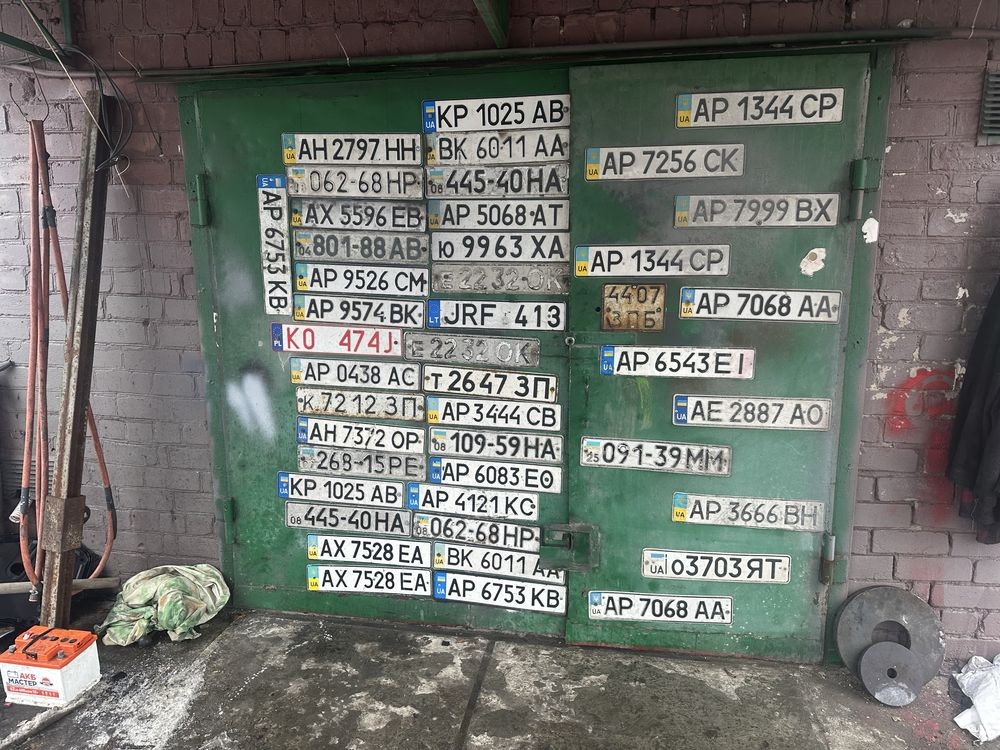 KP 1025 AB
AP 1344 CP
AH 2797 HH
BK 6011 AA
AP 7256 CK
062-68 HP
08 445-40 HA
AP 6753 KB
AX 5596 EB
AP 5068 AT
AP 7999 BX
04 801-88 AB
ю 9963 ХА
AP 1344 CP
AP 9526 CM
Е 2232 ОК
4407
ЗПБ
AP 7068 AA
AP 9574 BK
LT JRF 413
PL KO 474J
Е 2232 ОК
AP 6543 EI
AP 0438 AC
т 2647 ЗП
К 7212 ЗП
AP 3444 CB
AE 2887 AO
AH 7372 OP
08 109-59 HA
25 091-39 MM
268-15 PE
AP 6083 EO
KP 1025 AB
AP 4121 KC
AP 3666 BH
08 445-40 HA
08 062-68 HP
AX 7528 EA
BK 6011 AA
UA о3703 ЯТ
AX 7528 EA
AP 6753 KB
AP 7068 AA
АКБ
МАСТЕР